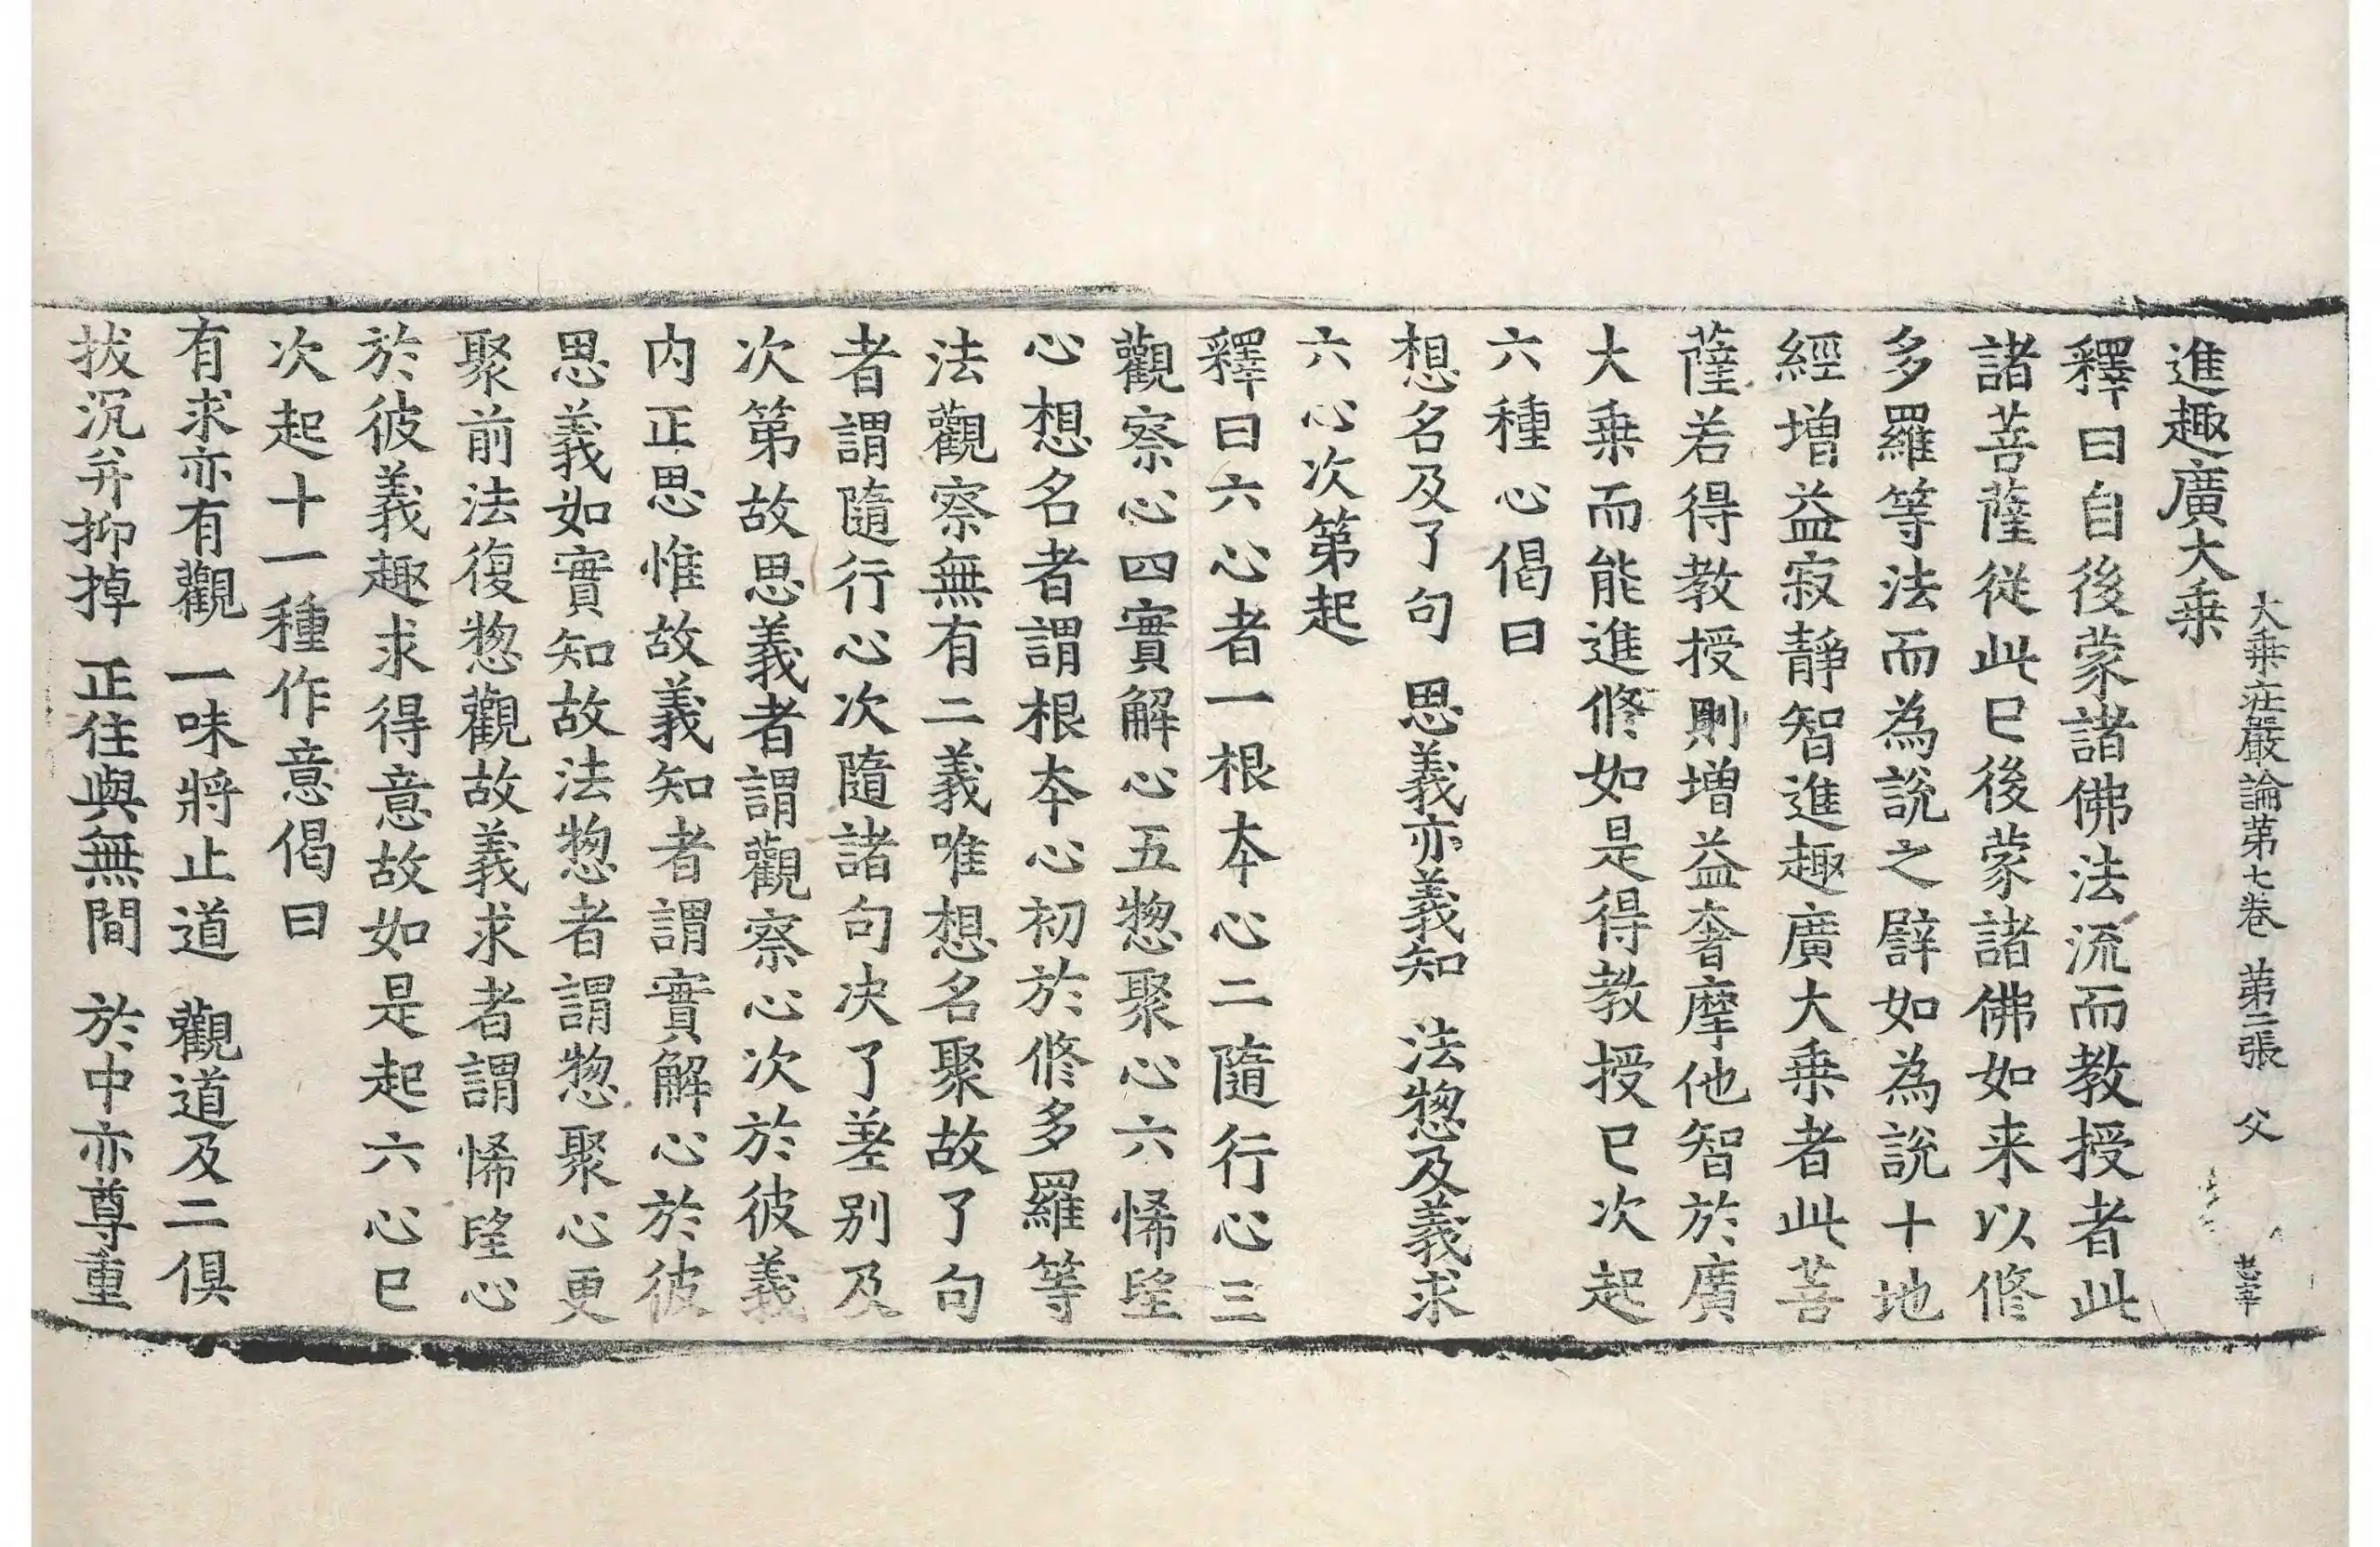 大乗荘嚴論第七巻　第二張　父
進趣廣大乗
釋曰自後蒙諸佛法流而教授者此
諸菩薩從此已後蒙諸佛如来以修
多羅等法而為說之辟如為說十地
經增益寂靜智進趣廣大乗者此菩
薩若得教授則增益奢摩他智於廣
大乗而能進修如是得教授已次起
六種心偈曰
想名及了句　思義亦義知　法惣及義求
六心次第起
釋曰六心者一根本心二隨行心三
觀察心四實解心五惣聚心六悕望
心想名者謂根本心初於修多羅等
法觀察無有二義唯想名聚故了句
者謂隨行心次隨諸句决了差别及
次第故思義者謂觀察心次於彼義
内正思惟故義知者謂實解心於彼
思義如實知故法惣者謂惣聚心更
聚前法復惣觀故義求者謂悕望心
於彼義趣求得意故如是起六心已
次起十一種作意偈曰
有求亦有觀　一味將止道　觀道及二俱
拔沉并抑掉　正住與無間　於中亦尊重